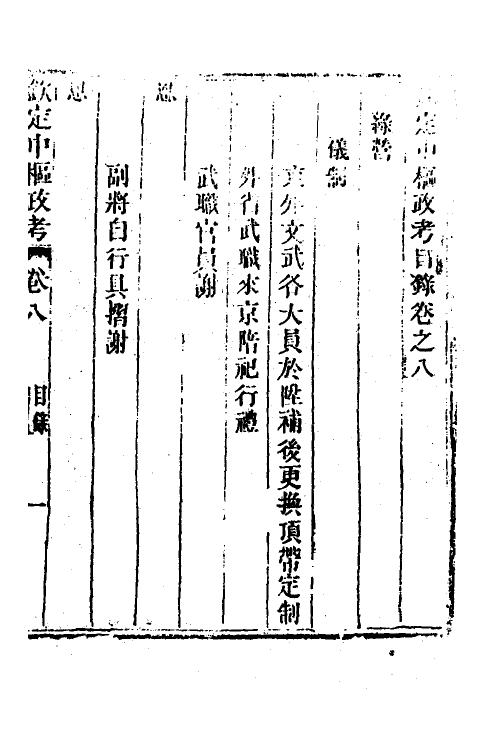 定中樞政考目錄卷之八
綠營
儀制
京外文武各大員於陞補後更換頂帶定制
外省武職來京陪祀行禮
武職官員謝
恩
副將自行具摺謝
恩
欽定中樞政考 卷八 目錄 一